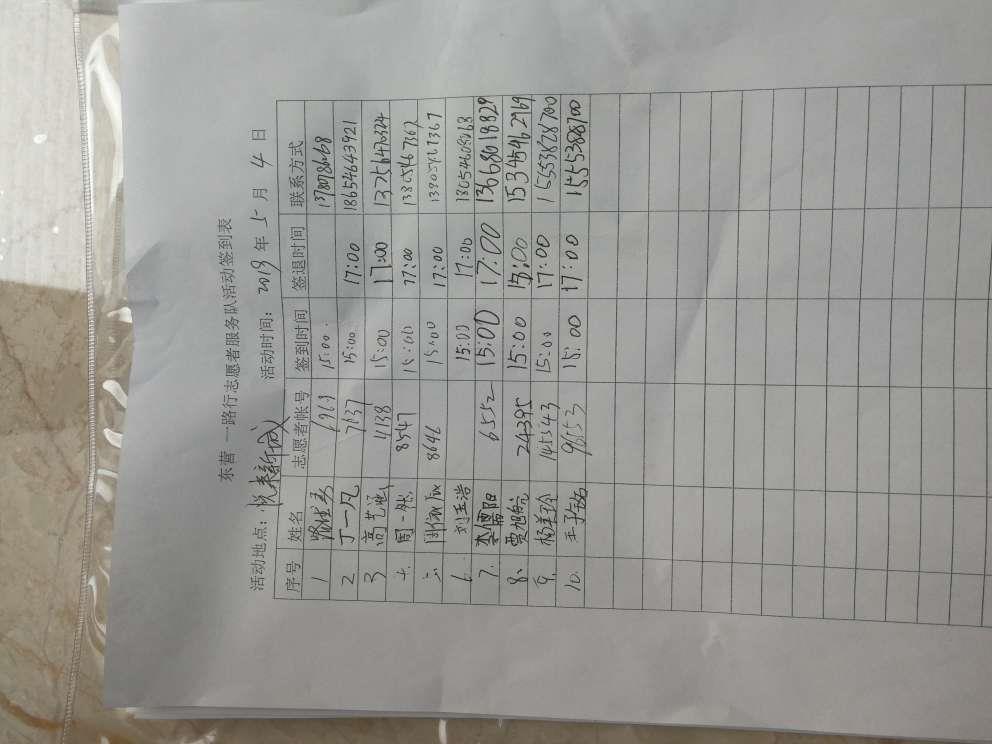 东营一路行志愿者服务队活动签到表
活动地点：悦来新城 活动时间：2019年5月4日
序号 姓名 志愿者帐号 签到时间 签退时间 联系方式
1 15:00
2 丁一凡 7137 15:00 17:00 18654643921
3 高艺 4138 15:00 17:00 13256470324
4. 周一 8547 15:00 17:00 13805467362
8646 15:00 17:00 13805467367
6. 刘玉浩 15:00 17:00 18054609068
7. 李儒阳 6552 15:00 17:00 13668018829
8、 贾旭皖 24395 15:00 15:00 15345462169
9. 杨美玲 145343 15:00 17:00 15553828700
10. 王子铭 9653 15:00 17:00 15553828700